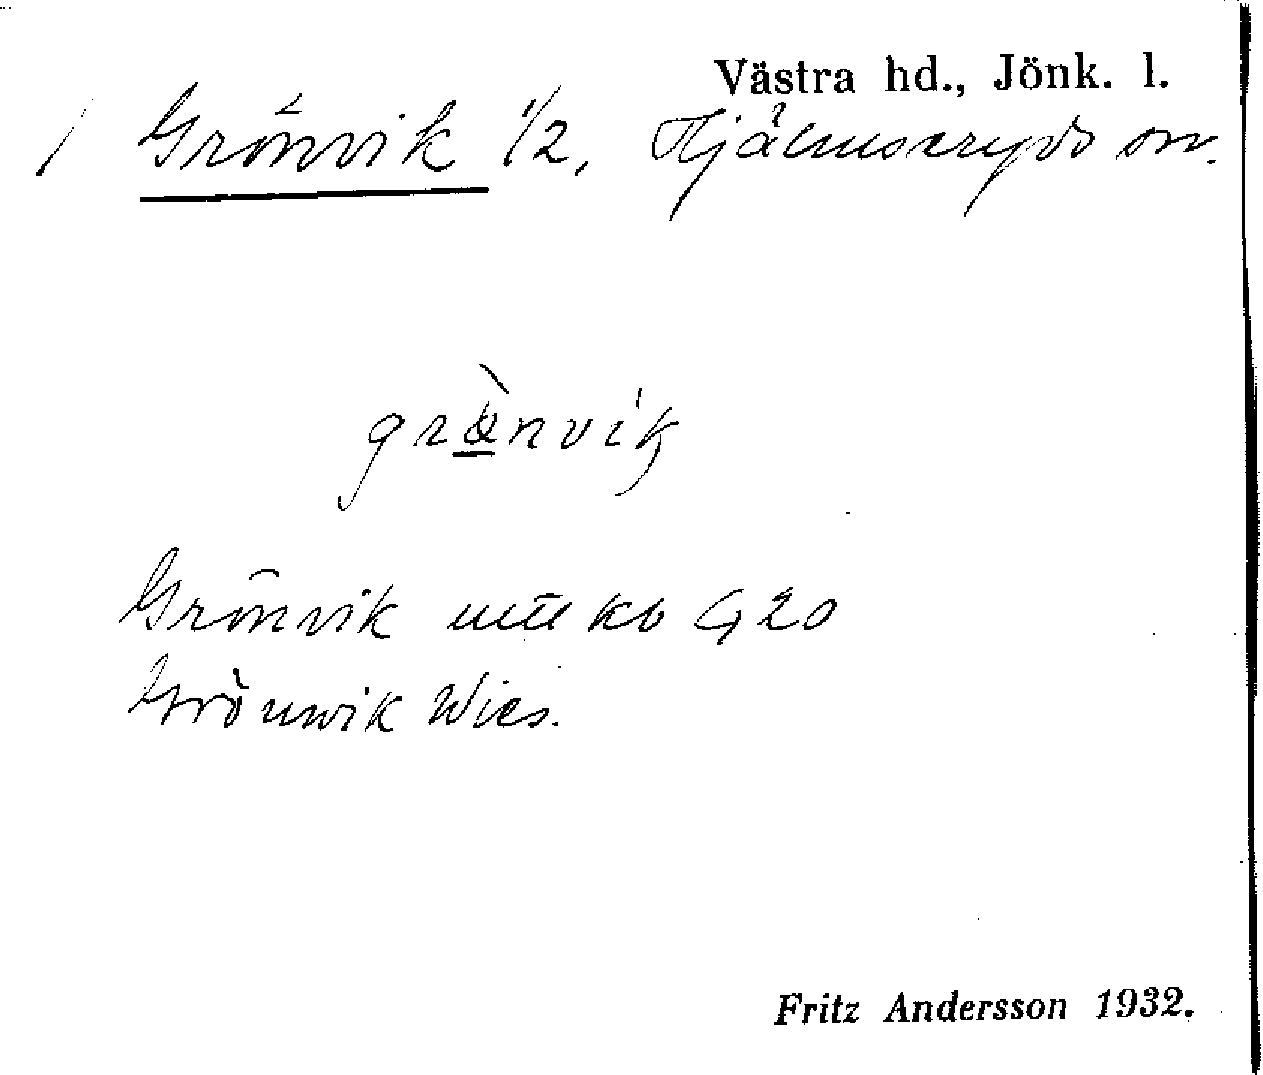 Västra hd., Jönk. l.
Grönvik 1/2, Hjälmseryds sn.
grö̀nvik
Grönvik kb G 20
Grönwik Wies.
Fritz Andersson 1932.